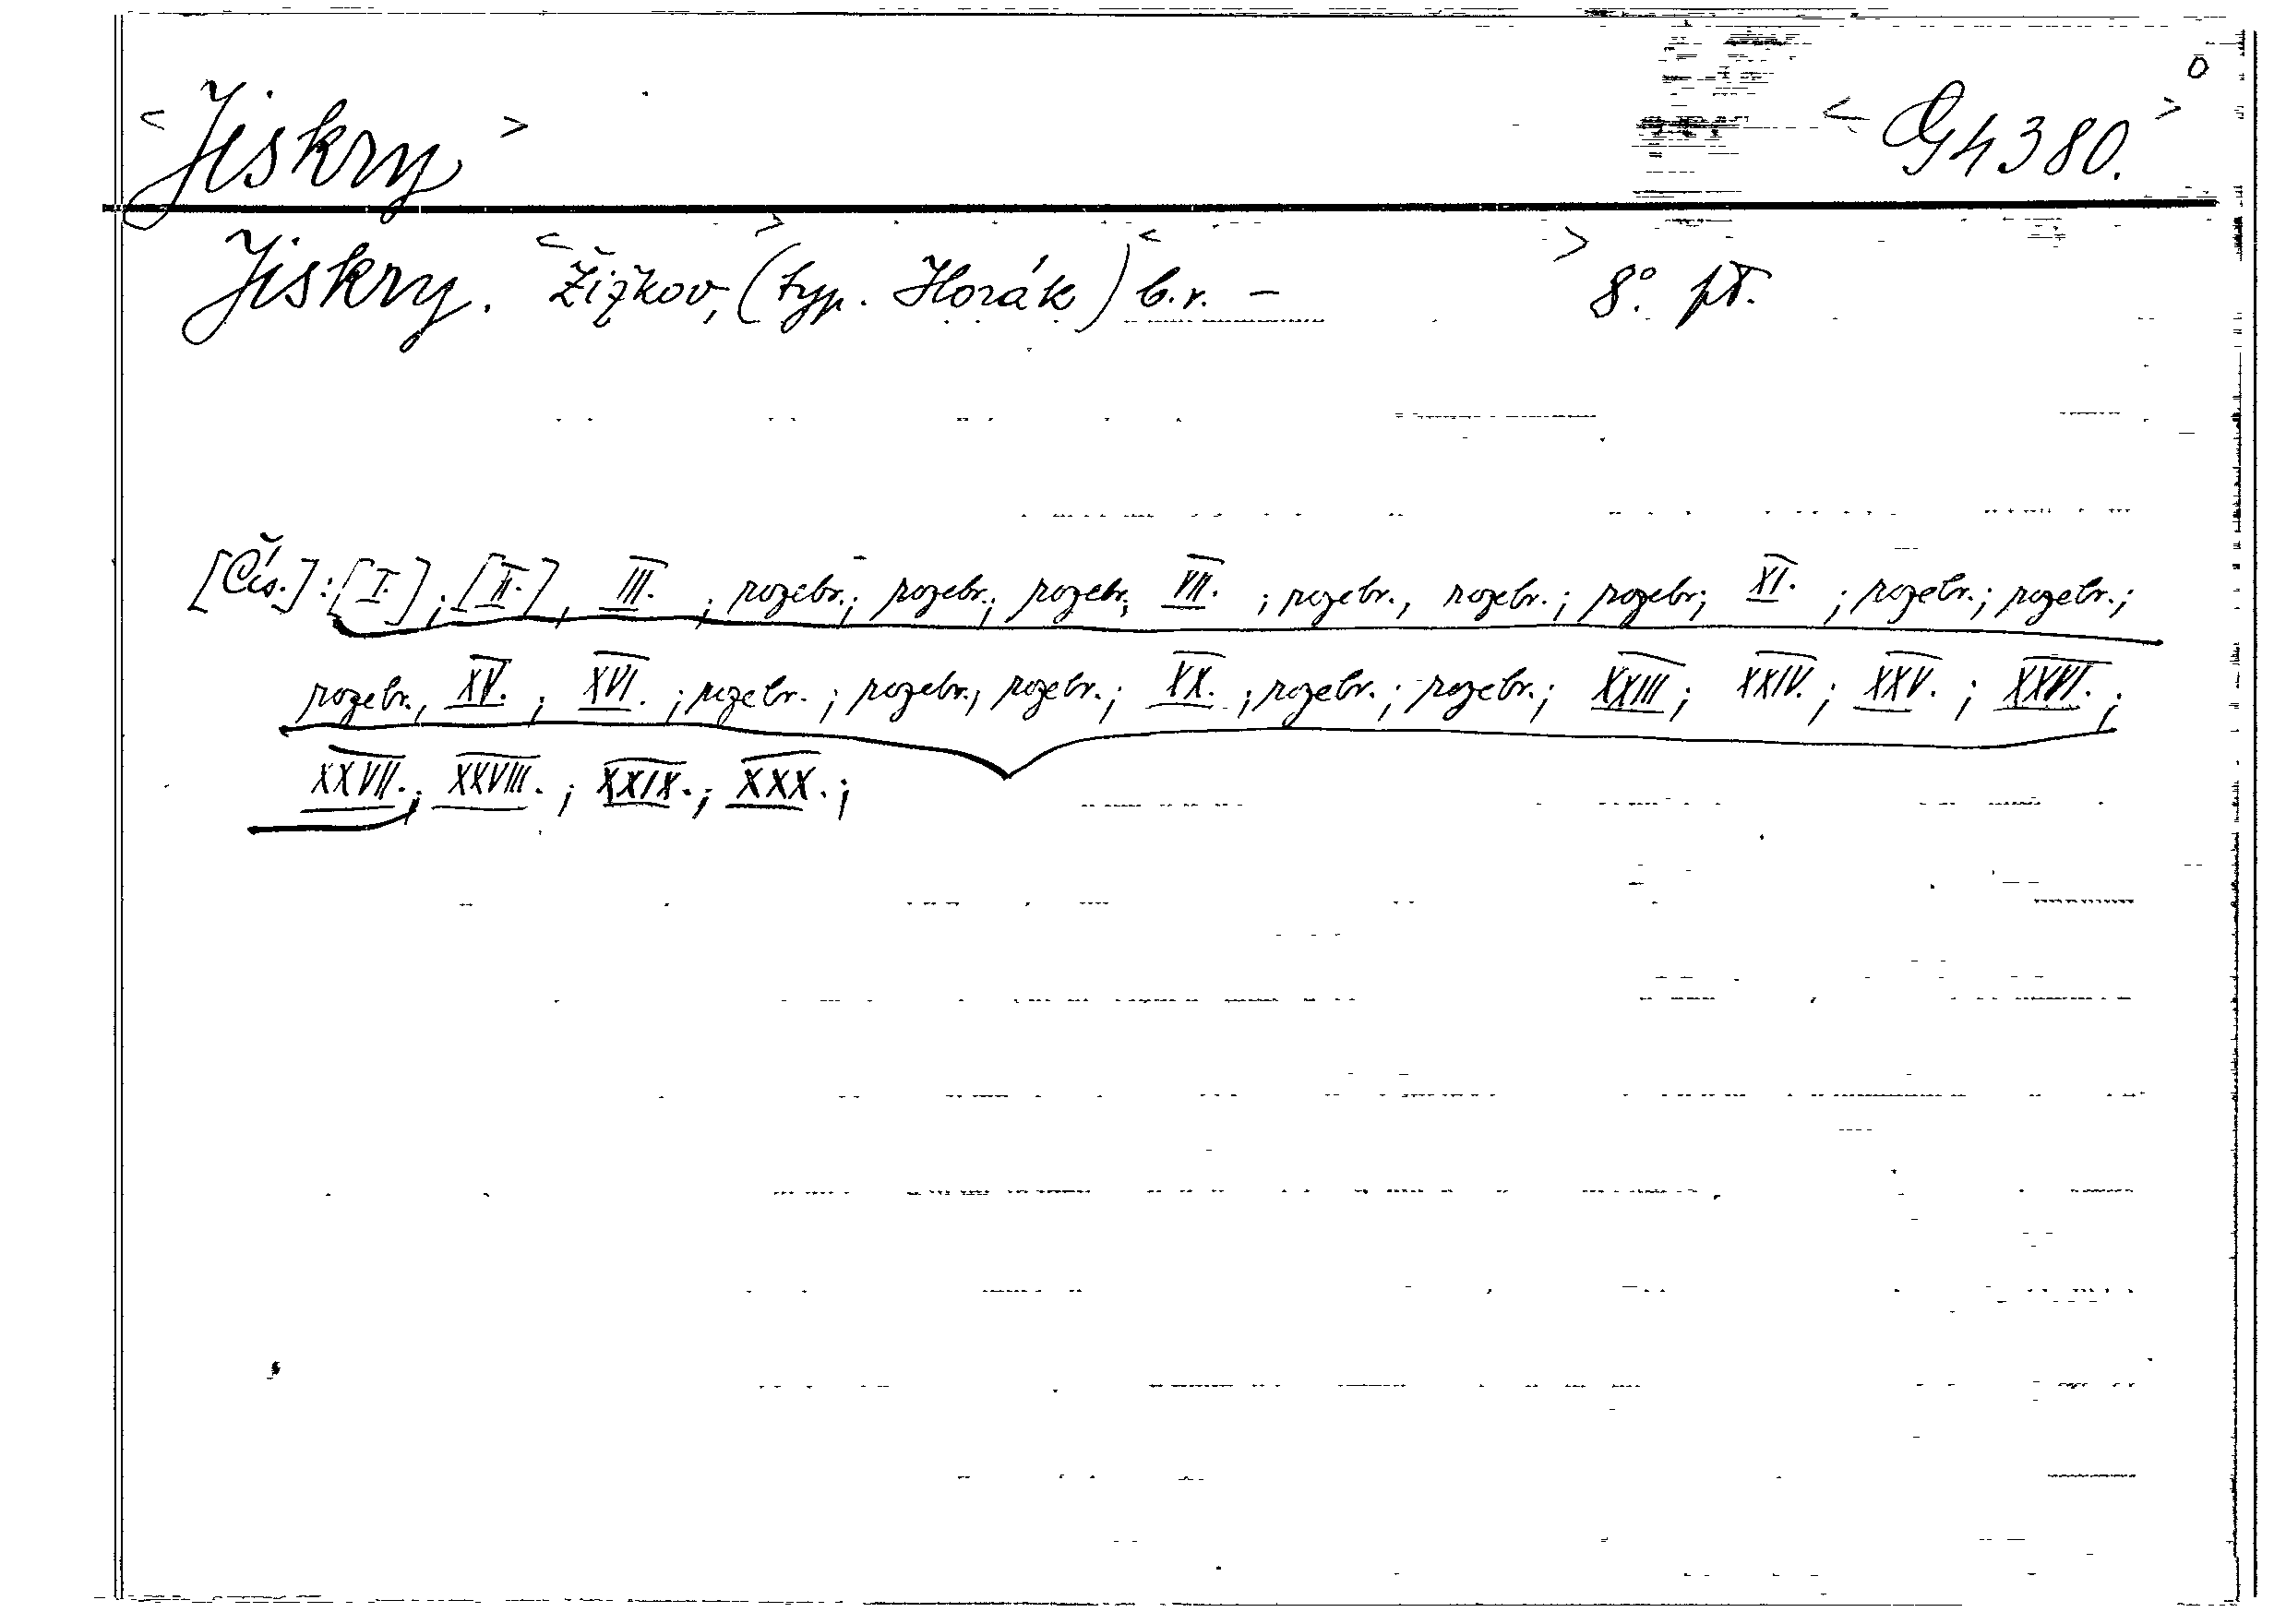 <Jiskry> <G4380.> o
Jiskry. <Žižkov,> (typ. Horák) <b.r. – > 8°. př.
[Čís.]: [I.]; [II.], III. ; rozebr.; rozebr.; rozebr; VII. ; rozebr., rozebr.; rozebr; XI. ; rozebr.; rozebr.;
rozebr., XV. ; XVI. ; rozebr. ; rozebr., rozebr.; XX. ; rozebr. ; rozebr.; XXIII ; XXIV. ; XXV. ; XXVI. ;
XXVII. ; XXVIII. ; XXIX. ; XXX. ;